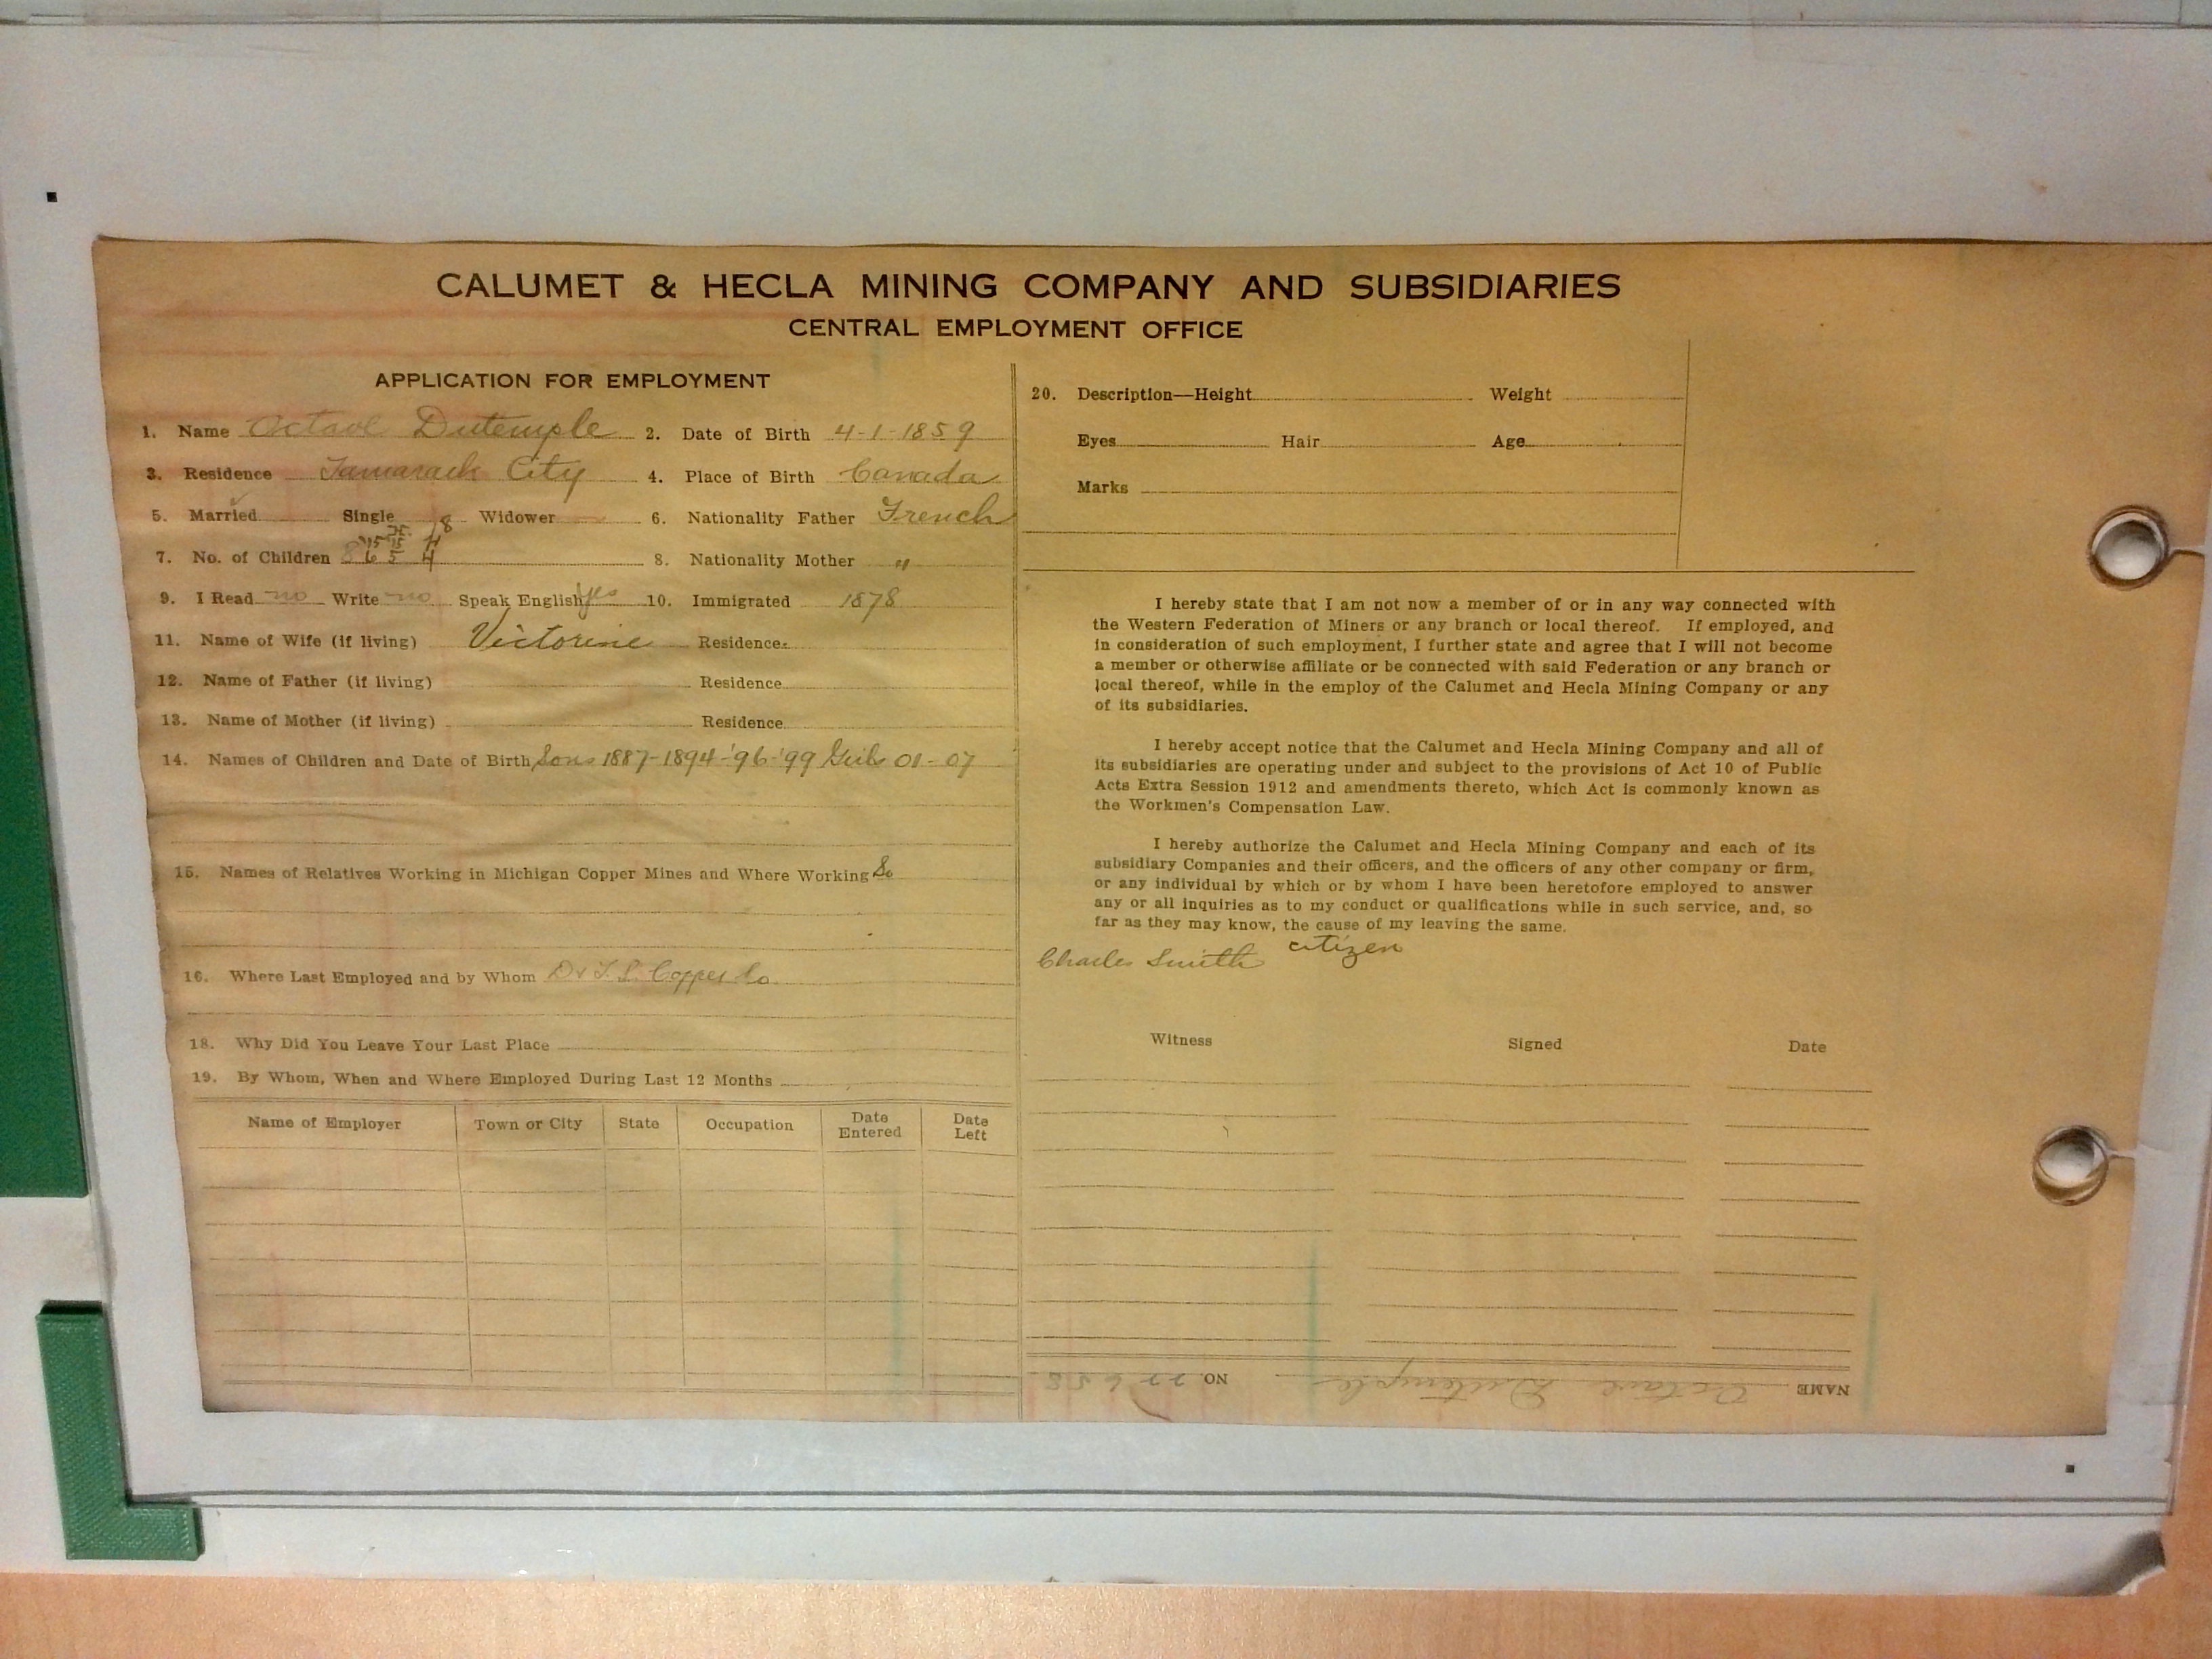 CALUMET & HECLA MINING COMPANY AND SUBSIDIARIES
CENTRAL EMPLOYMENT OFFICE
APPLICATION FOR EMPLOYMENT
1. Name Octave Dutemple 2. Date of Birth 4-1-1859
3. Residence Tamarack City 4. Place of Birth Canada
5. Married Single Widower 6. Nationality Father French
7. No. of Children 8 6 5 4 8. Nationality Mother "
9. I Read no Write no Speak English yes 10. Immigrated 1878
11. Name of Wife (if living) Victorine Residence
12. Name of Father (if living) Residence
13. Name of Mother (if living) Residence
14. Names of Children and Date of Birth Sons 1887-1894-'96-'99 Girls 01-07
15. Names of Relatives Working in Michigan Copper Mines and Where Working
16. Where Last Employed and by Whom Copper Co.
18. Why Did You Leave Your Last Place
19. By Whom, When and Where Employed During Last 12 Months
Name of Employer Town or City State Occupation Date Entered Date Left
20. Description—Height Weight
Eyes Hair Age
Marks
I hereby state that I am not now a member of or in any way connected with
the Western Federation of Miners or any branch or local thereof. If employed, and
in consideration of such employment, I further state and agree that I will not become
a member or otherwise affiliate or be connected with said Federation or any branch or
local thereof, while in the employ of the Calumet and Hecla Mining Company or any
of its subsidiaries.
I hereby accept notice that the Calumet and Hecla Mining Company and all of
its subsidiaries are operating under and subject to the provisions of Act 10 of Public
Acts Extra Session 1912 and amendments thereto, which Act is commonly known as
the Workmen's Compensation Law.
I hereby authorize the Calumet and Hecla Mining Company and each of its
subsidiary Companies and their officers, and the officers of any other company or firm,
or any individual by which or by whom I have been heretofore employed to answer
any or all inquiries as to my conduct or qualifications while in such service, and, so
far as they may know, the cause of my leaving the same.
Charles Smith citizen
Witness Signed Date
NAME Octave Dutemple NO. 22658